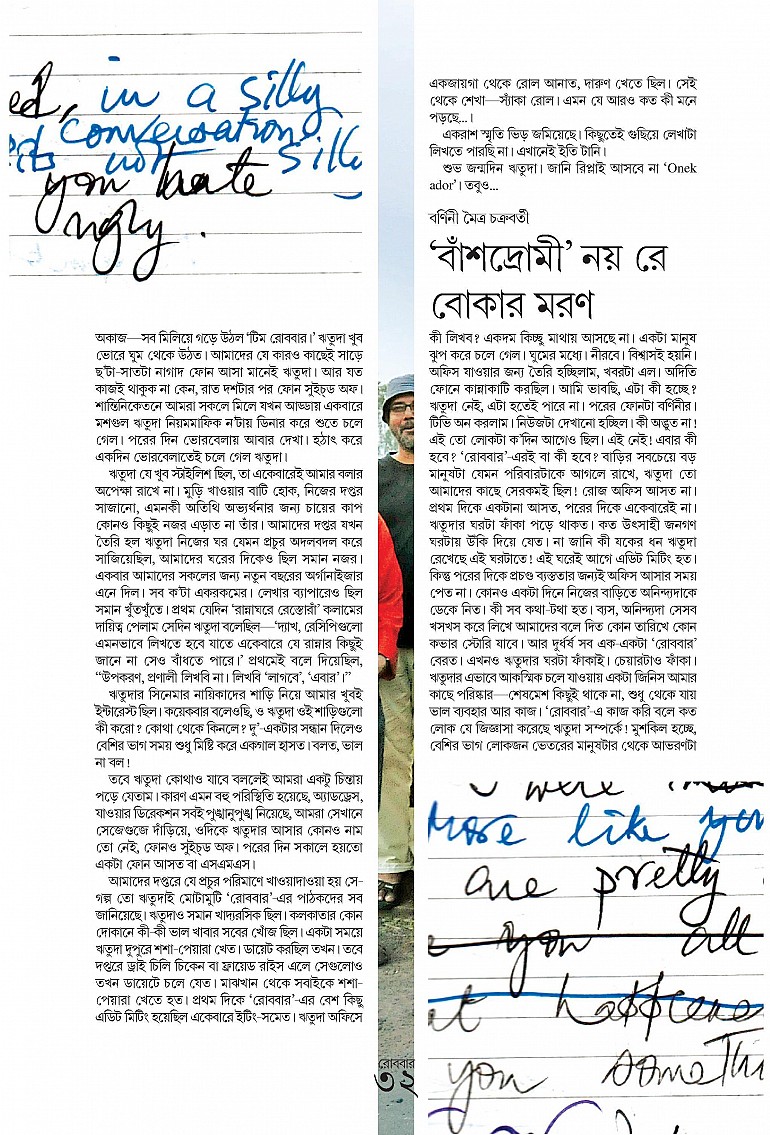 ed, in a silly
conversation
not silly
you hate
ugly.
অকাজ—সব মিলিয়ে গড়ে উঠল ‘টিম রোববার।’ ঋতুদা খুব
ভোরে ঘুম থেকে উঠত। আমাদের যে কারও কাছেই সাড়ে
ছ’টা-সাতটা নাগাদ ফোন আসা মানেই ঋতুদা। আর যত
কাজই থাকুক না কেন, রাত দশটার পর ফোন সুইচ্‌ড অফ।
শান্তিনিকেতনে আমরা সকলে মিলে যখন আড্ডায় একবারে
মশগুল ঋতুদা নিয়মমাফিক ন’টায় ডিনার করে শুতে চলে
গেল। পরের দিন ভোরবেলায় আবার দেখা। হঠাৎ করে
একদিন ভোরবেলাতেই চলে গেল ঋতুদা।
ঋতুদা যে খুব স্টাইলিশ ছিল, তা একেবারেই আমার বলার
অপেক্ষা রাখে না। মুড়ি খাওয়ার বাটি হোক, নিজের দপ্তর
সাজানো, এমনকী অতিথি অভ্যর্থনার জন্য চায়ের কাপ
কোনও কিছুই নজর এড়াত না তাঁর। আমাদের দপ্তর যখন
তৈরি হল ঋতুদা নিজের ঘর যেমন প্রচুর অদলবদল করে
সাজিয়েছিল, আমাদের ঘরের দিকেও ছিল সমান নজর।
একবার আমাদের সকলের জন্য নতুন বছরের অর্গানাইজার
এনে দিল। সব ক’টা একরকমের। লেখার ব্যাপারেও ছিল
সমান খুঁতখুঁতে। প্রথম যেদিন ‘রান্নাঘরে রেস্তোরাঁ’ কলামের
দায়িত্ব পেলাম সেদিন ঋতুদা বলেছিল—‘দ্যাখ, রেসিপিগুলো
এমনভাবে লিখতে হবে যাতে একেবারে যে রান্নার কিছুই
জানে না সেও রাঁধতে পারে।’ প্রথমেই বলে দিয়েছিল,
“উপকরণ, প্রণালী লিখবি না। লিখবি ‘লাগবে’, ‘এবার’।”
ঋতুদার সিনেমার নায়িকাদের শাড়ি নিয়ে আমার খুবই
ইন্টারেস্ট ছিল। কয়েকবার বলেওছি, ও ঋতুদা ওই শাড়িগুলো
কী করো? কোথা থেকে কিনলে? দু’-একটার সন্ধান দিলেও
বেশির ভাগ সময় শুধু মিষ্টি করে একগাল হাসত। বলত, ভাল
না বল!
তবে ঋতুদা কোথাও যাবে বললেই আমরা একটু চিন্তায়
পড়ে যেতাম। কারণ এমন বহু পরিস্থিতি হয়েছে, অ্যাডড্রেস,
যাওয়ার ডিরেকশন সবই পুঙ্খানুপুঙ্খ নিয়েছে, আমরা সেখানে
সেজেগুজে দাঁড়িয়ে, ওদিকে ঋতুদার আসার কোনও নাম
তো নেই, ফোনও সুইচ্‌ড অফ। পরের দিন সকালে হয়তো
একটা ফোন আসত বা এসএমএস।
আমাদের দপ্তরে যে প্রচুর পরিমাণে খাওয়াদাওয়া হয় সে-
গল্প তো ঋতুদাই মোটামুটি ‘রোববার’-এর পাঠকদের সব
জানিয়েছে। ঋতুদাও সমান খাদ্যরসিক ছিল। কলকাতার কোন
দোকানে কী-কী ভাল খাবার সবের খোঁজ ছিল। একটা সময়ে
ঋতুদা দুপুরে শশা-পেয়ারা খেত। ডায়েট করছিল তখন। তবে
দপ্তরে ড্রাই চিলি চিকেন বা ফ্রায়েড রাইস এলে সেগুলোও
তখন ডায়েটে চলে যেত। মাঝখান থেকে সবাইকে শশা-
পেয়ারা খেতে হত। প্রথম দিকে ‘রোববার’-এর বেশ কিছু
এডিট মিটিং হয়েছিল একেবারে ইটিং-সমেত। ঋতুদা অফিসে
একজায়গা থেকে রোল আনাত, দারুণ খেতে ছিল। সেই
থেকে শেখা—স্যাঁকা রোল। এমন যে আরও কত কী মনে
পড়ছে...।
একরাশ স্মৃতি ভিড় জমিয়েছে। কিছুতেই গুছিয়ে লেখাটা
লিখতে পারছি না। এখানেই ইতি টানি।
শুভ জন্মদিন ঋতুদা। জানি রিপ্লাই আসবে না ‘Onek
ador’। তবুও...
বর্ণিনী মৈত্র চক্রবর্তী
‘বাঁশদ্রোমী’ নয় রে
বোকার মরণ
কী লিখব? একদম কিচ্ছু মাথায় আসছে না। একটা মানুষ
ঝুপ করে চলে গেল। ঘুমের মধ্যে। নীরবে। বিশ্বাসই হয়নি।
অফিস যাওয়ার জন্য তৈরি হচ্ছিলাম, খবরটা এল। অদিতি
ফোনে কান্নাকাটি করছিল। আমি ভাবছি, এটা কী হচ্ছে?
ঋতুদা নেই, এটা হতেই পারে না। পরের ফোনটা বর্ণিনীর।
টিভি অন করলাম। নিউজটা দেখানো হচ্ছিল। কী অদ্ভুত না!
এই তো লোকটা ক’দিন আগেও ছিল। এই নেই! এবার কী
হবে? ‘রোববার’-এরই বা কী হবে? বাড়ির সবচেয়ে বড়
মানুষটা যেমন পরিবারটাকে আগলে রাখে, ঋতুদা তো
আমাদের কাছে সেরকমই ছিল। রোজ অফিস আসত না।
প্রথম দিকে একটানা আসত, পরের দিকে একেবারেই না।
ঋতুদার ঘরটা ফাঁকা পড়ে থাকত। কত উৎসাহী জনগণ
ঘরটায় উঁকি দিয়ে যেত। না জানি কী যকের ধন ঋতুদা
রেখেছে এই ঘরটাতে! এই ঘরেই আগে এডিট মিটিং হত।
কিন্তু পরের দিকে প্রচণ্ড ব্যস্ততার জন্যই অফিস আসার সময়
পেত না। কোনও একটা দিনে নিজের বাড়িতে অনিন্দ্যদাকে
ডেকে নিত। কী সব কথা-টথা হত। ব্যস, অনিন্দ্যদা সেসব
খসখস করে লিখে আমাদের বলে দিত কোন তারিখে কোন
কভার স্টোরি যাবে। আর দুর্ধর্ষ সব এক-একটা ‘রোববার’
বেরত। এখনও ঋতুদার ঘরটা ফাঁকাই। চেয়ারটাও ফাঁকা।
ঋতুদার এভাবে আকস্মিক চলে যাওয়ায় একটা জিনিস আমার
কাছে পরিষ্কার—শেষমেশ কিছুই থাকে না, শুধু থেকে যায়
ভাল ব্যবহার আর কাজ। ‘রোববার’-এ কাজ করি বলে কত
লোক যে জিজ্ঞাসা করেছে ঋতুদা সম্পর্কে! মুশকিল হচ্ছে,
বেশির ভাগ লোকজন ভেতরের মানুষটার থেকে আবরণটা
were
more like you
are pretty
you all
you someth
রোববার
৩২